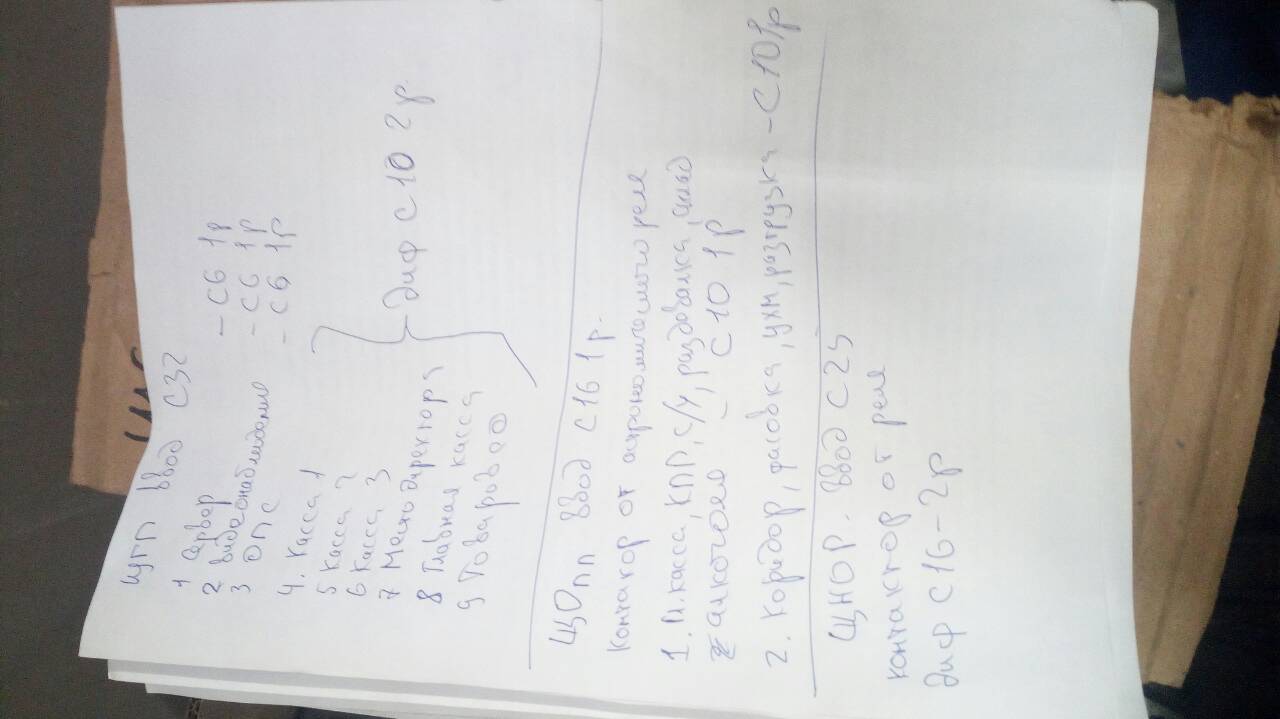 ЩГП ввод С32
1 Сервер - С6 1р
2 Видеонаблюдение - С6 1р
3 ОПС - С6 1р
4. Касса 1
5 Касса 2
6 Касса 3
7 Место директора
8 Главная касса
9 Товаровед
Диф С10 2р
ЩОпп ввод С16 1р.
Контактор от астрономического реле
1. Гл. касса, КПП, с/у, раздевалка, склад
алкоголя, С10 1р
2. Коридор, фасовка, ухм, разгрузка - С10 1р
ЩНОР. ввод С25
контактор от реле
Диф С16-2р